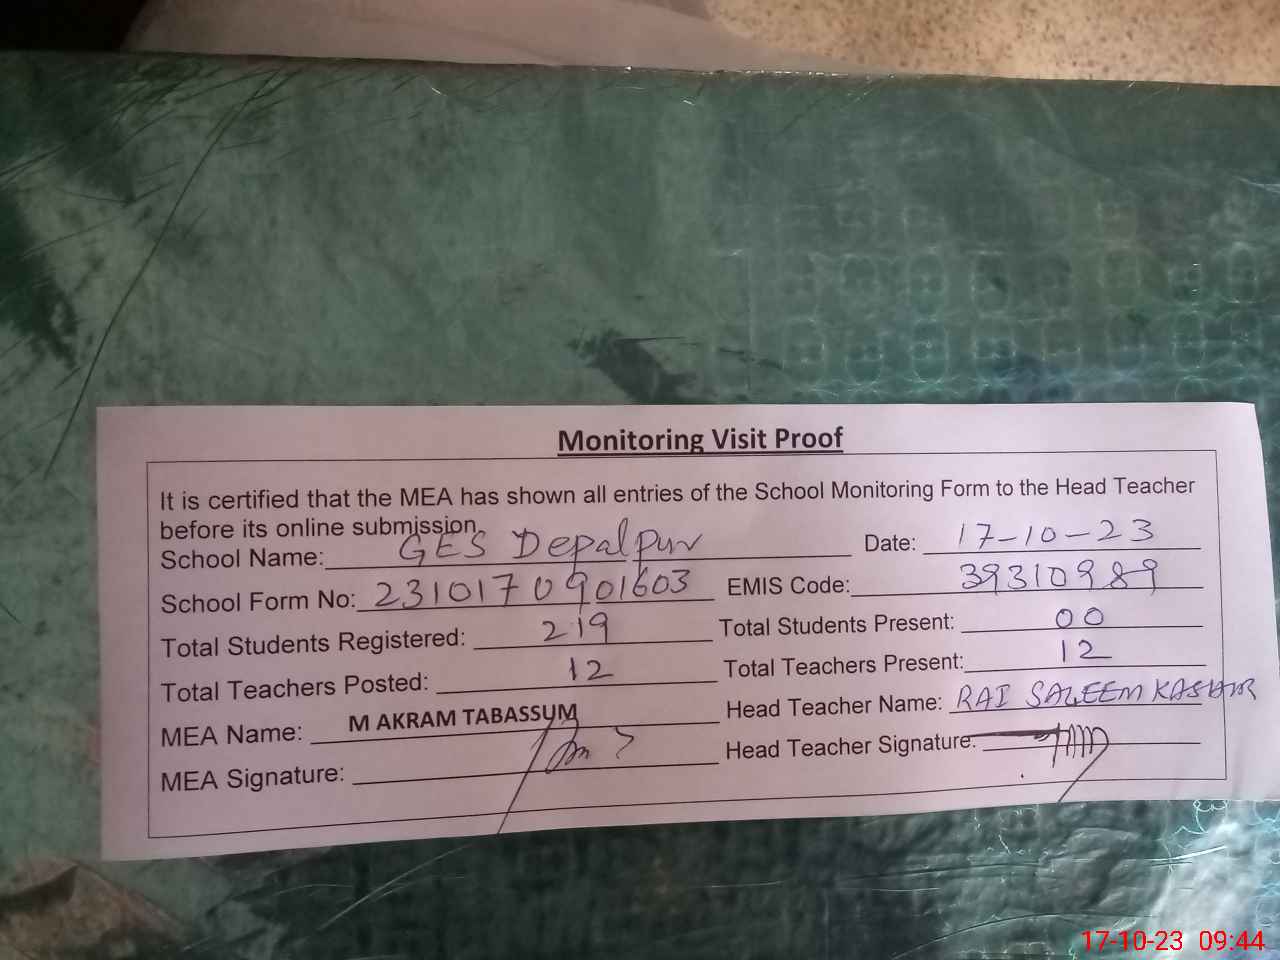 Monitoring Visit Proof
It is certified that the MEA has shown all entries of the School Monitoring Form to the Head Teacher
before its online submission.
School Name: GES Depalpur Date: 17-10-23
School Form No: 2310170901603 EMIS Code: 39310989
Total Students Registered: 219 Total Students Present: 00
Total Teachers Posted: 12 Total Teachers Present: 12
MEA Name: M AKRAM TABASSUM Head Teacher Name: RAI SALEEM
MEA Signature: Head Teacher Signature:
17-10-23 09:44